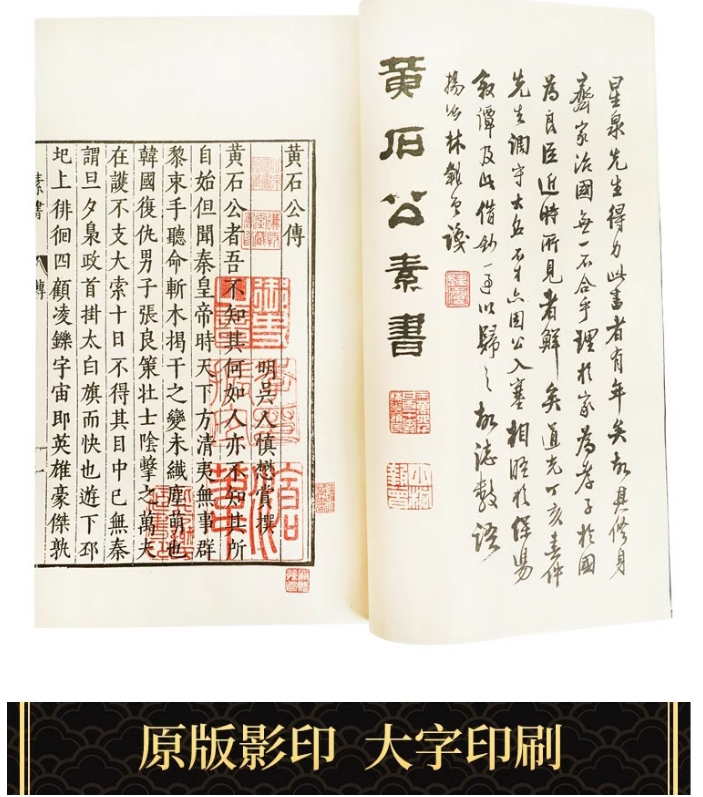 星泉先生得力此書者有年矣故其修身
齊家治國無一不合乎理於家為孝子於國
為良臣近時所見者鮮矣道光丁亥春仲
先生調守大名不才亦因公入塞相晤於保陽
敘譚及此借鈔一通以歸之敬誌數語
林毓 謹
黄石公素書
黄石公傳
明吳人慎懋賞撰
黄石公者吾不知其何如人亦不知其所
自始但聞秦皇帝時天下方清夷無事群
黎束手聽命斬木揭干之變未纖塵萌也
韓國復仇男子張良策壮士陰擊之萬夫
在護不支大索十日不得其目中已無秦
謂旦夕梟政首掛太白旗而快也遊下邳
圯上徘徊四顧凌鑠宇宙即英雄豪傑孰
素書 傳 一
原版影印 大字印刷